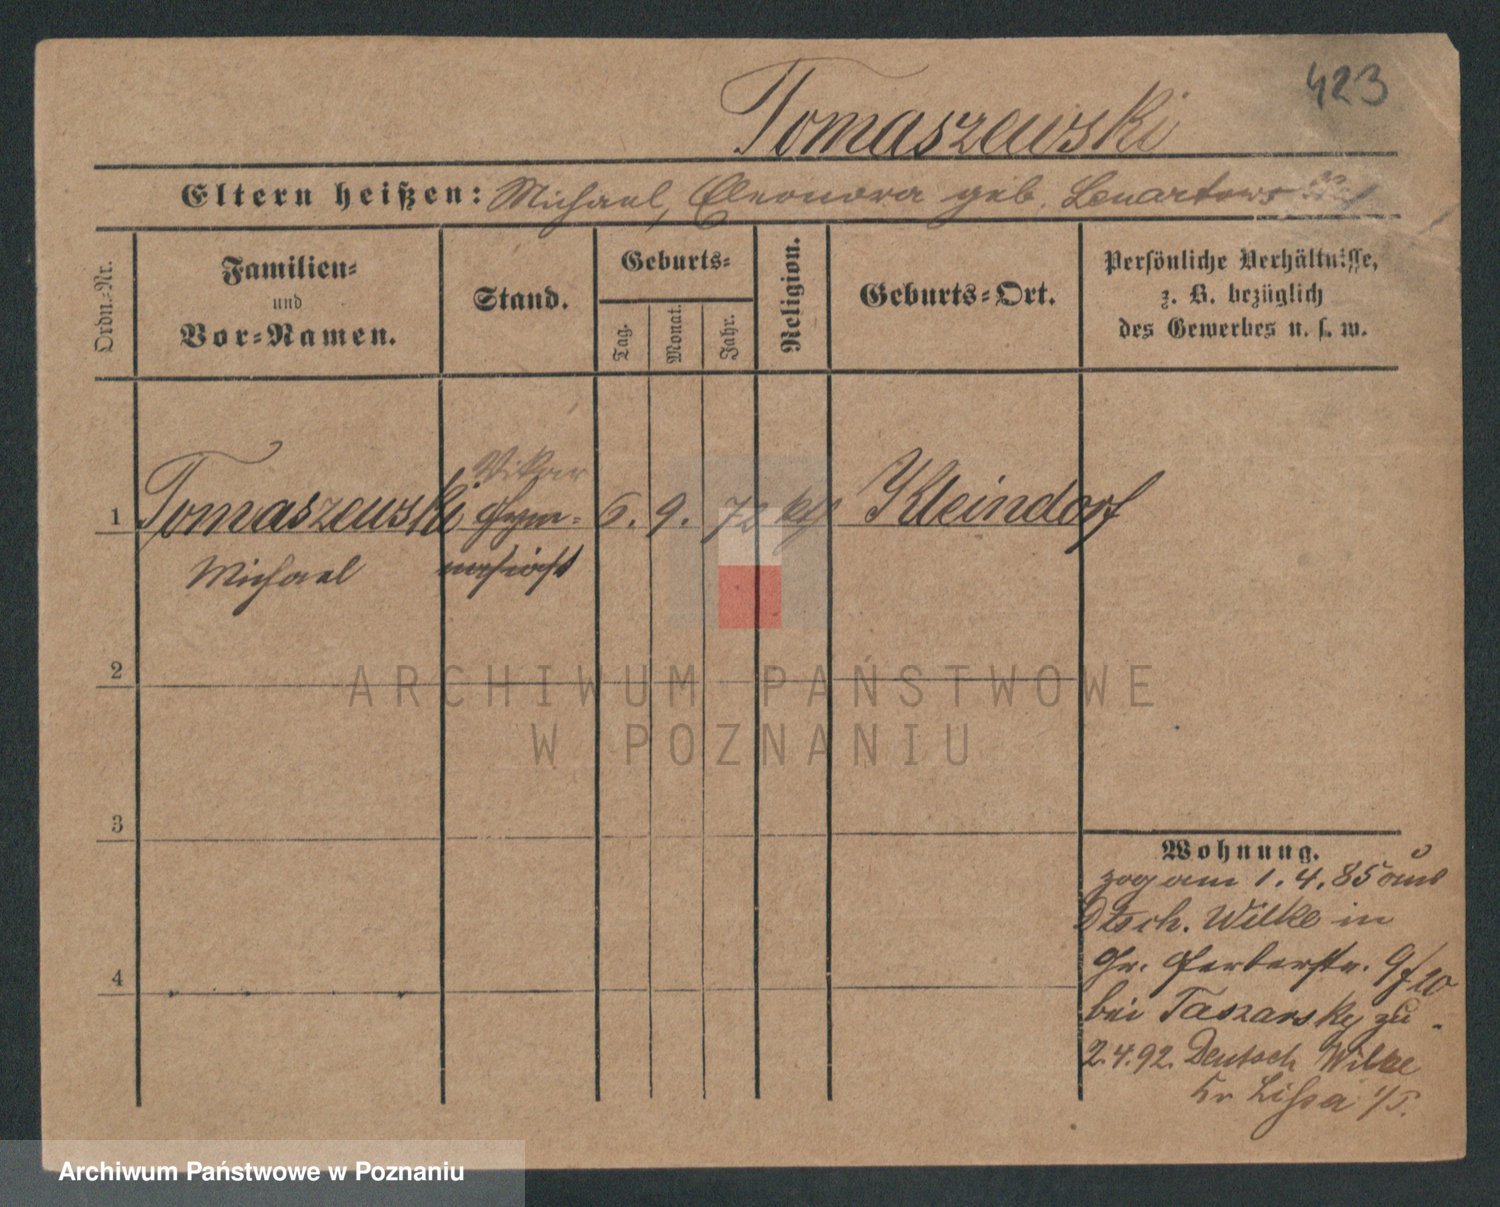 423
Tomaszewski
Eltern heißen: Michael, Eleonora geb. Lenartowska
Ordn.-Nr.
Familien-
und
Vor-Namen.
Stand.
Geburts-
Tag.
Monat.
Jahr.
Religion.
Geburts-Ort.
Persönliche Verhältnisse,
z. B. bezüglich
des Gewerbes u. s. w.
Vikar
1 Tomaszewski Gym- 6. 9. 72 kth Kleindorf
Michael nasiast
2
3
4
Wohnung.
zog am 1.4.85 aus
Dtsch. Wilke in
Gr. Gerberstr. 9/20
bei Taszarsky zu.
2.4.92. Deutsch Wilke
Kr Lissa i/P.
ARCHIWUM PAŃSTWOWE
W POZNANIU
Archiwum Państwowe w Poznaniu